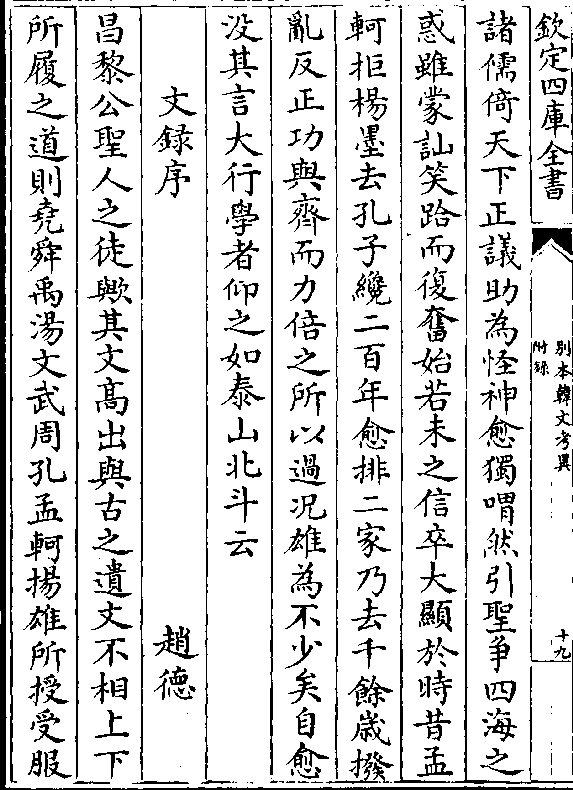 欽定四庫全書
別本韓文考異
附錄
十九
諸儒倚天下正議助為怪神愈獨喟然引聖爭四海之
惑雖蒙訕笑跲而復奮始若未之信卒大顯於時昔孟
軻拒楊墨去孔子纔二百年愈排二家乃去千餘歲撥
亂反正功與齊而力倍之所以過況雄為不少矣自愈
没其言大行學者仰之如泰山北斗云
文録序 趙德
昌黎公聖人之徒歟其文髙出與古之遺文不相上下
所履之道則堯舜禹湯文武周孔孟軻揚雄所授受服